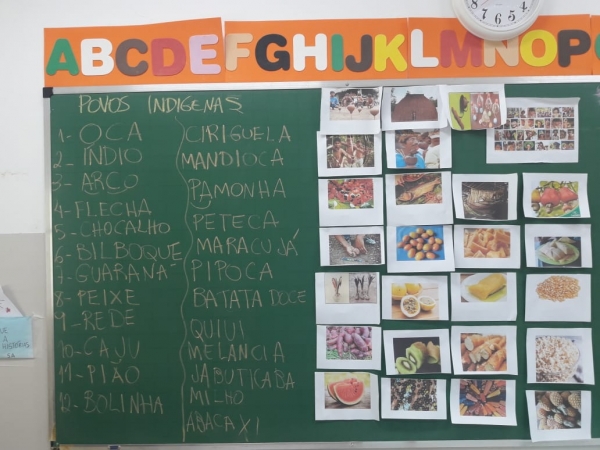 ABCDEFGHIJKLMNOP
8 7 6 5 4
POVOS INDIGENAS
1- OCA
2- ÍNDIO
3- ARCO
4- FLECHA
5- CHOCALHO
6- BILBOQUE
7- GUARANÁ
8- PEIXE
9- REDE
10- CAJU
11- PIÃO
12- BOLINHA
CIRIGUELA
MANDIOCA
PAMONHA
PETECA
MARACUJÁ
PIPOCA
BATATA DOCE
QUIUI
MELANCIA
JABUTICABA
MILHO
ABACAXI